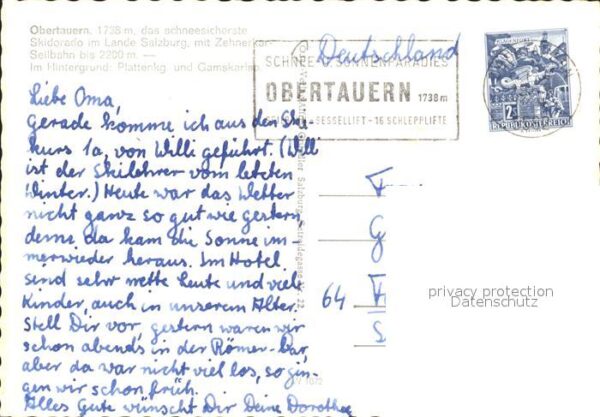 Obertauern, 1738 m, das schneesicherste
Skidorado im Lande Salzburg, mit Zehnerkar-
Seilbahn bis 2200 m. —
Im Hintergrund: Plattenkg. und Gamskarlsp.
Deutschland
SCHNEE- SONNENPARADIES
OBERTAUERN 1738 m
SESSELLIFT - 16 SCHLEPPLIFTE
2 S
REPUBLIK ÖSTERREICH
Liebe Oma,
gerade komme ich aus den Ski-
kurs 1a, von Willi geführt. (Willi
ist der Skilehrer vom letzten
Winter.) Heute war das Wetter
nicht ganz so gut wie gestern,
denn da kam die Sonne im-
merwieder heraus. Im Hotel
sind sehr nette Leute und viele
Kinder, auch in unserem Alter.
Stell Dir vor, gestern waren wir
schon abends in der Römer-Bar,
aber da war nicht viel los, so gin-
gen wir schon früh.
Alles Gute wünscht Dir Deine Dorothee
F
G
64 F
S
privacy protection
Datenschutz